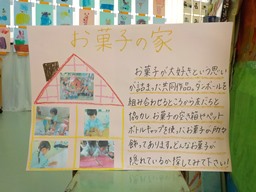 お菓子の家
お菓子が大好きという思い
が詰まった共同作品。ダンボールを
組み合わせるところから友だちと
協力し、お菓子の空き箱やペット
ボトルキャップを使ったお菓子が沢山
飾ってあります。どんなお菓子が
隠れているか探してみて下さい!